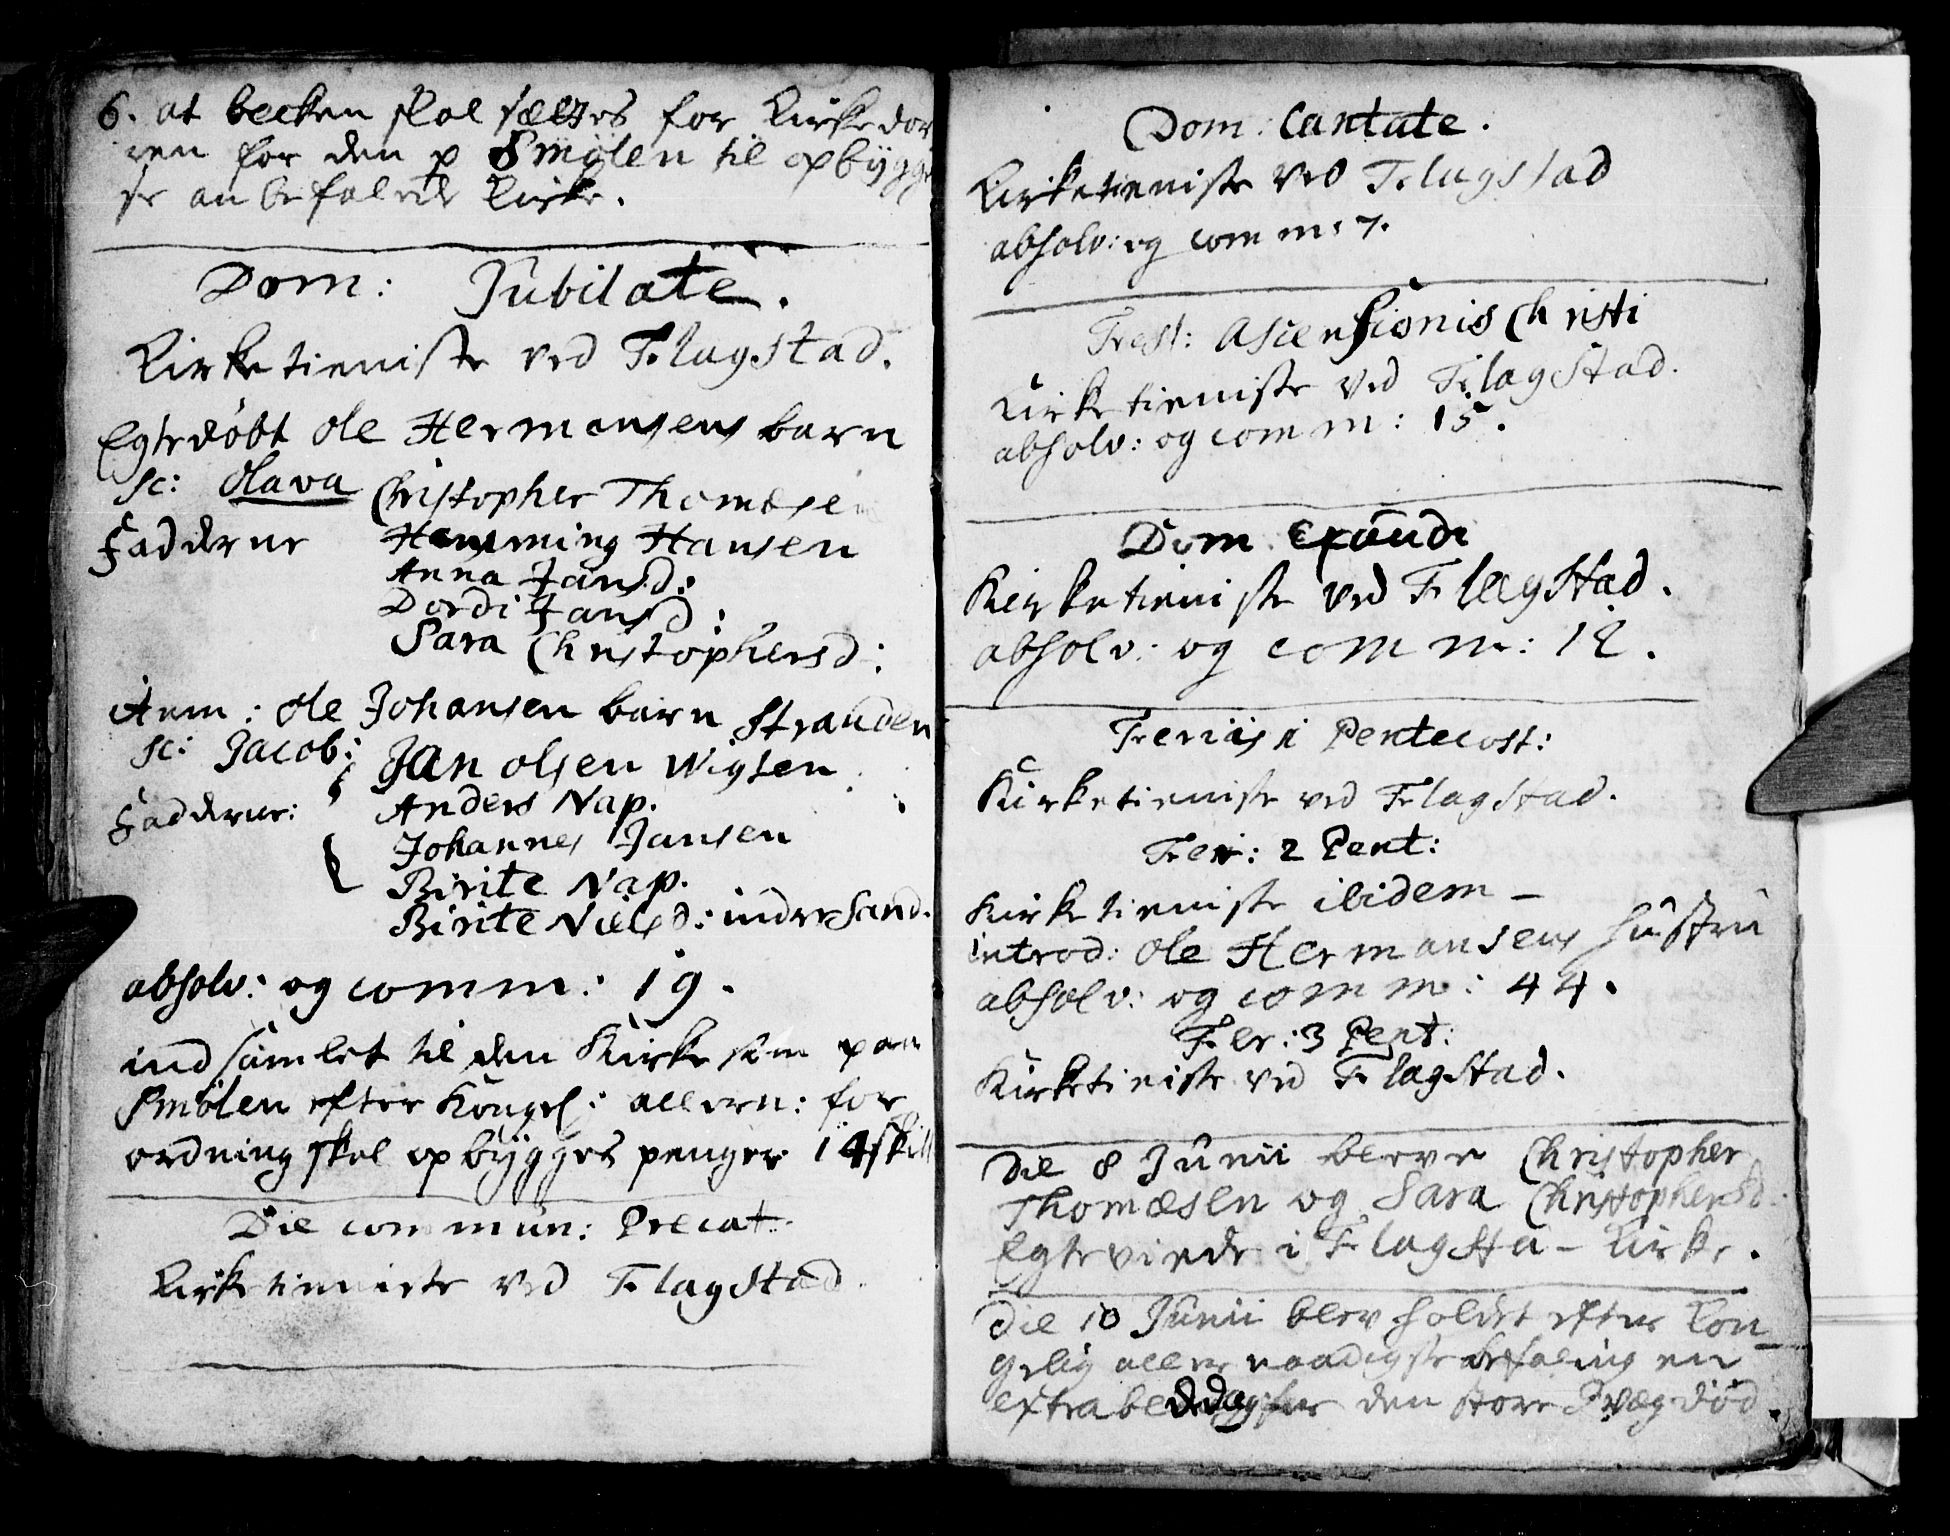 6. at becken skal sættes for Kirkedør
ren for den p Smölen til opbygge
se anbefalede Kirke.
Dom: Jubilate.
Kirketieniste ved Flagstad.
Egte döbt Ole Hermansens barn
sc: Olava Christopher Thomæsen
Fadderne Hemming Hansen
Anna Jansd:
Dordi Jansd:
Sara Christophersd:
Item: Ole Johansen barn Stranden
sc: Jacob: Jan Olsen Wigten
Fadderne: Anders Nap.
Johannes Jansen
Birite Nap.
Birite Nielsd: indre Sand.
absolv: og comm: 19.
indsamlet til den Kirke som paa
Smölen efter Kongel: allern: for
ordning skal opbygges penger 14 skill
Die commun: Precat.
Kirketieniste ved Flagstad.
Dom: Cantate.
Kirketieniste ved Flagstad
absolv: og comm: 7.
Fest: Ascensionis Christi
Kirketieniste ved Flagstad.
absolv: og comm: 15.
Dom. Exaudi
Kirketieniste ved Flagstad.
absolv: og comm: 12.
Feriis 1 Pentecost:
Kirketieniste ved Flagstad.
Feri: 2 Pent:
Kirketieniste ibidem –
introd: Ole Hermansens hustru
absolv: og comm: 44.
Fer: 3 Pent:
Kirketieniste ved Flagstad.
Die 8 Junii bleve Christopher
Thomæsen og Sara Christophersd:
Egteviede i Flagsta – Kirke.
Die 10 Junii blev holdet efter Kon
gelig allernaadigste befaling en
extrabeddag for den store Qvægdöd.